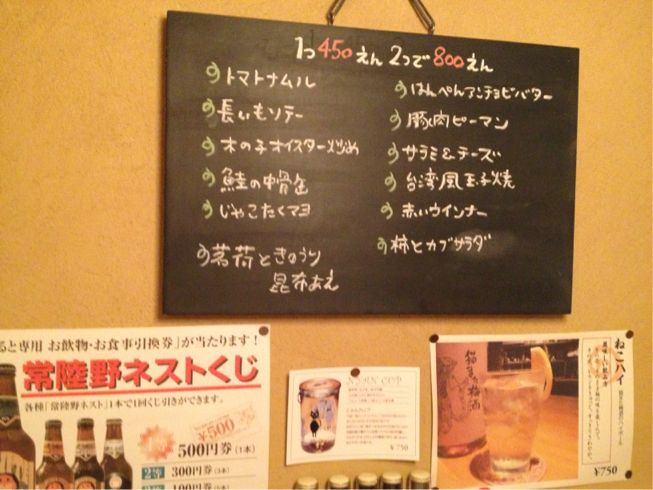 1つ450えん 2つで800えん
トマトナムル
長いもソテー
木の子オイスター炒め
鮭の中骨缶
じゃこたくマヨ
茗荷ときゅうり
昆布あえ
はんぺんアンチョビバター
豚肉ピーマン
サラミ&チーズ
台湾風玉子焼
赤いウインナー
柿とカブサラダ
ると専用 お飲物・お食事引換券」が当たります!
常陸野ネストくじ
各種「常陸野ネスト」1本で1回くじ引きができます。
¥500
500円券(1本)
2等 300円券
100円券
¥750
ねこハイ
美味しい飲み方
梅酒
¥750